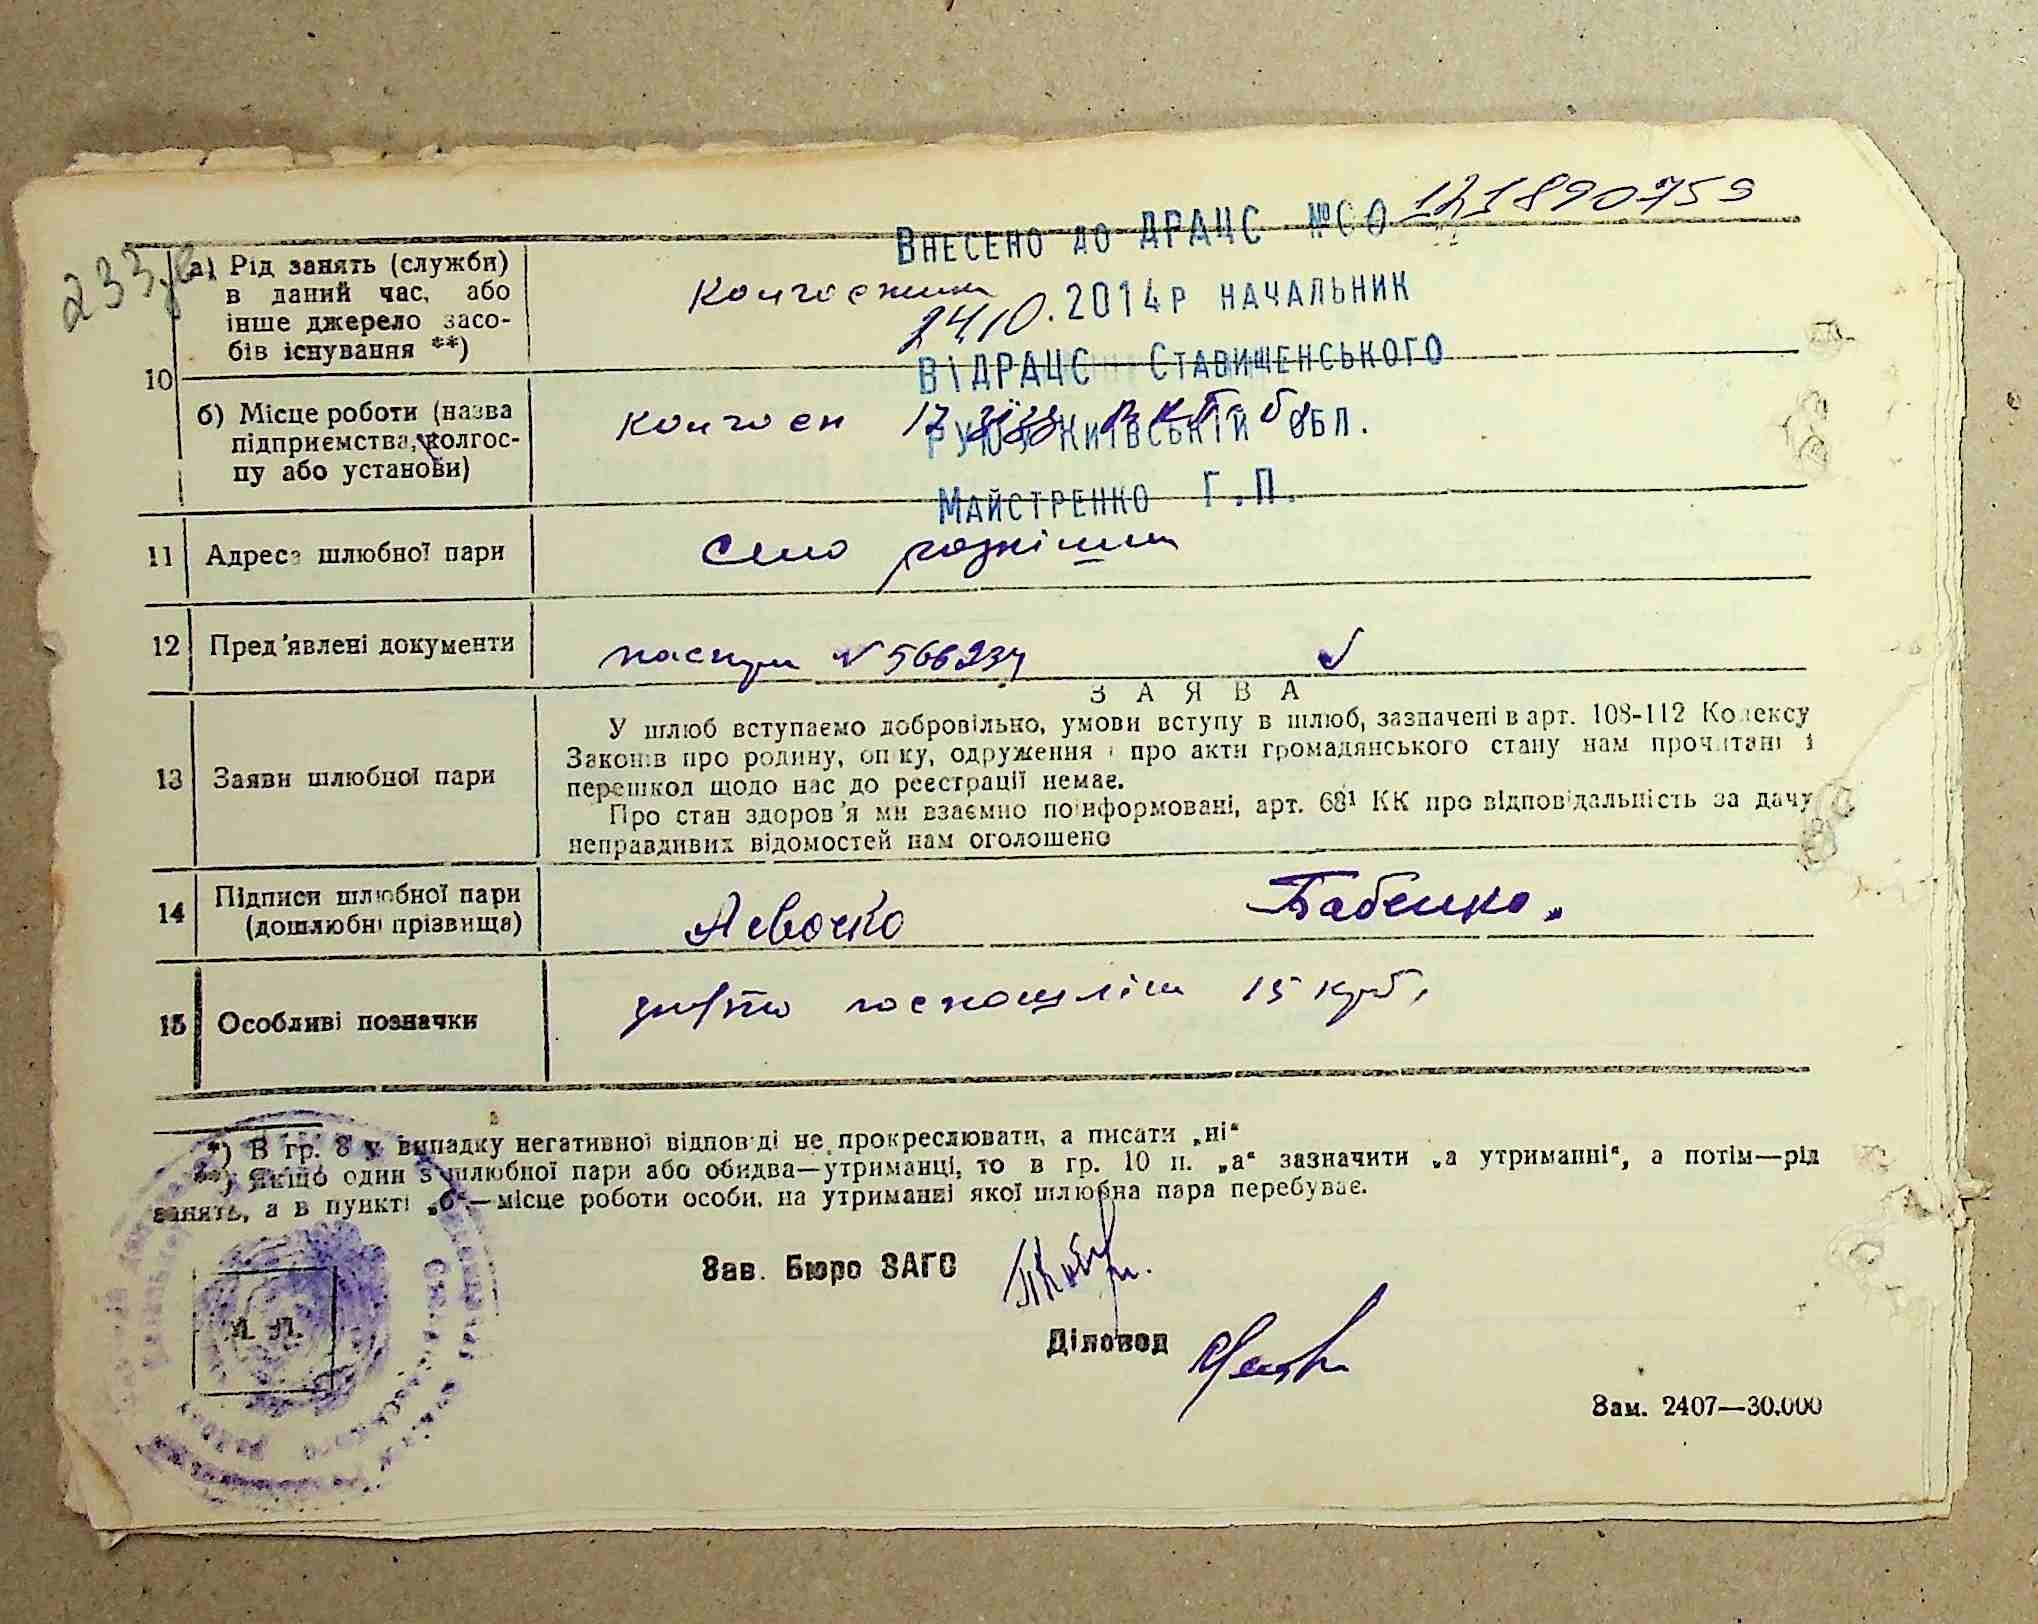 233
Внесено до ДРАЦС №СО 121890759
24.10.2014р начальник
ВіДРАЦС Ставищенського
РУЮ Київській обл.
Майстренко Г.П.
10
а) Рід занять (служби)
в даний час, або
інше джерело засо-
бів існування **)
б) Місце роботи (назва
підприємства, колгос-
пу або установи)
колгосп 17
11 Адреса шлюбної пари
село
12 Пред'явлені документи
паспорт № 566234
13 Заяви шлюбної пари
ЗАЯВА
У шлюб вступаємо добровільно, умови вступу в шлюб, зазначені в арт. 108-112 Кодексу
Законів про родину, опіку, одруження і про акти громадянського стану нам прочитані і
перешкод щодо нас до реєстрації немає.
Про стан здоров'я ми взаємно поінформовані, арт. 68¹ КК про відповідальність за дачу
неправдивих відомостей нам оголошено
14 Підписи шлюбної пари
(дошлюбні прізвища)
Левочко Бабенко.
15 Особливі позначки
держмита 15 крб.
*) В гр. 8 у випадку негативної відповіді не прокреслювати, а писати „ні“
**) Якщо один з шлюбної пари або обидва—утриманці, то в гр. 10 п. „а“ зазначити „а утриманні“, а потім—рід
занять, а в пункті „б“—місце роботи особи, на утриманні якої шлюбна пара перебуває.
Зав. Бюро ЗАГС
М. П.
Діловод
Зам. 2407—30.000